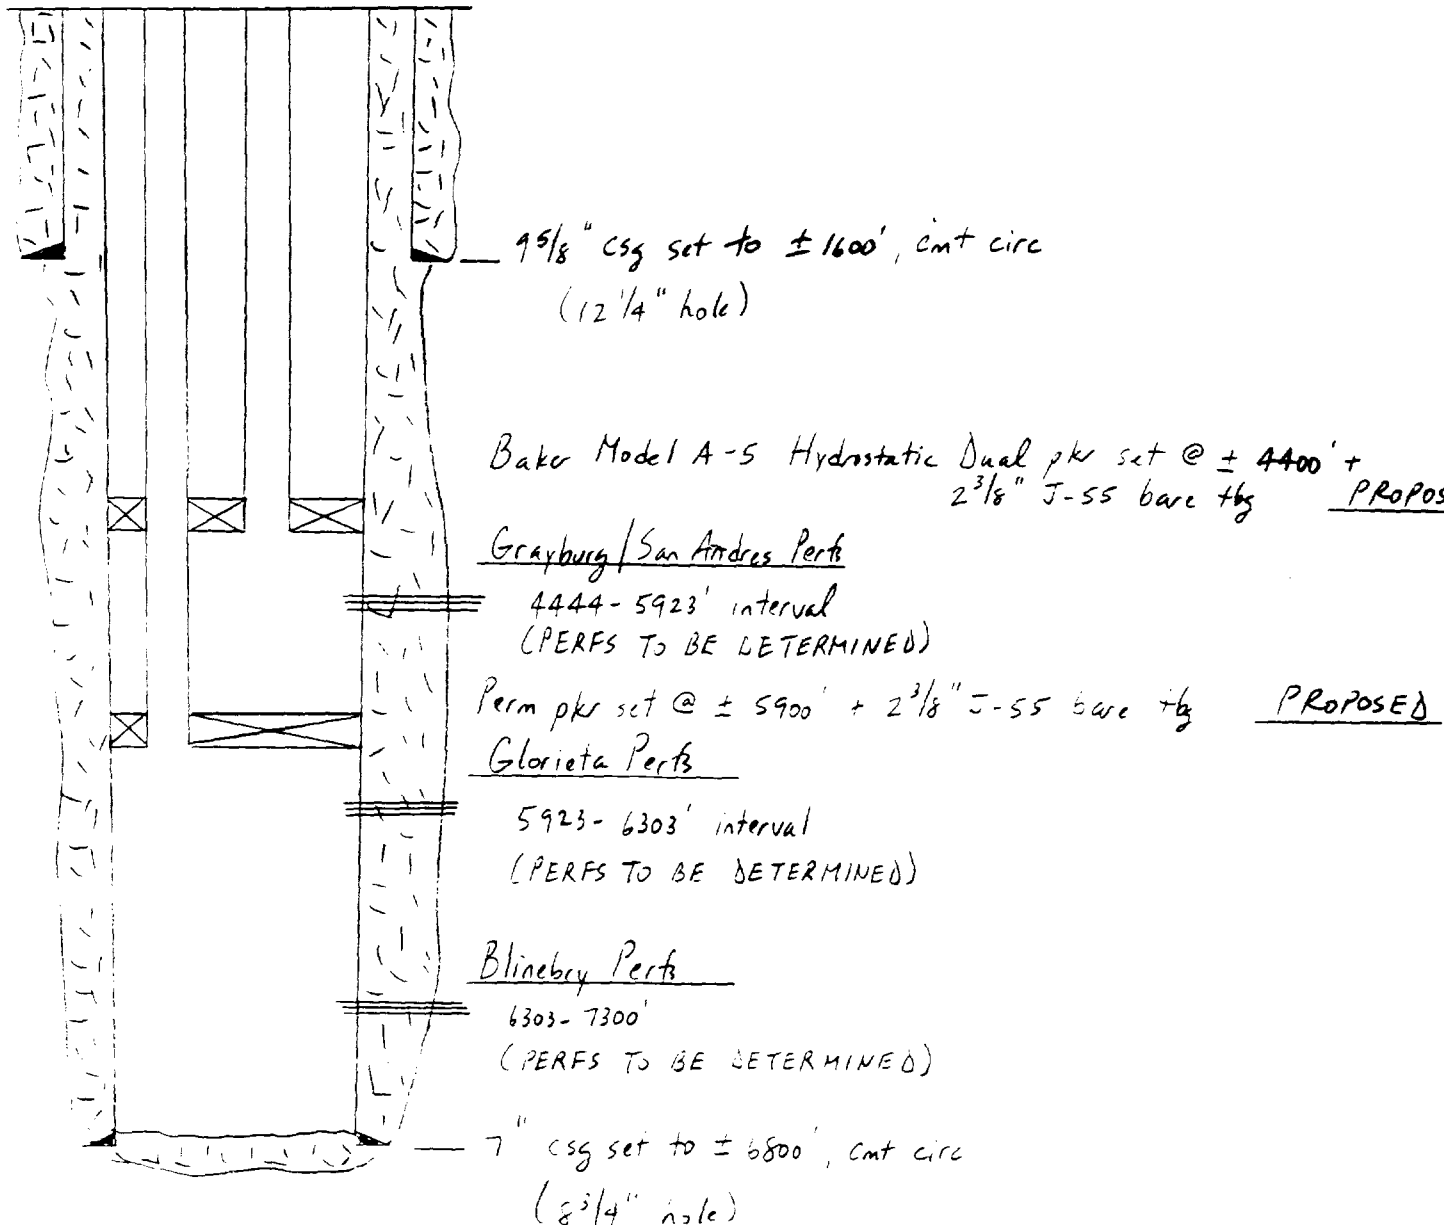 9 5/8" csg set to ± 1600', cmt circ
(12 1/4" hole)
Baker Model A-5 Hydrostatic Dual pkr set @ ± 4400' +
2 3/8" J-55 bare tbg PROPOS
Grayburg/San Andres Perfs
4444-5923' interval
(PERFS TO BE DETERMINED)
Perm pkr set @ ± 5900' + 2 3/8" J-55 bare tbg PROPOSED
Glorieta Perfs
5923-6303' interval
(PERFS TO BE DETERMINED)
Blinebry Perfs
6303-7300'
(PERFS TO BE DETERMINED)
7" csg set to ± 6800', cmt circ
(8 3/4" hole)